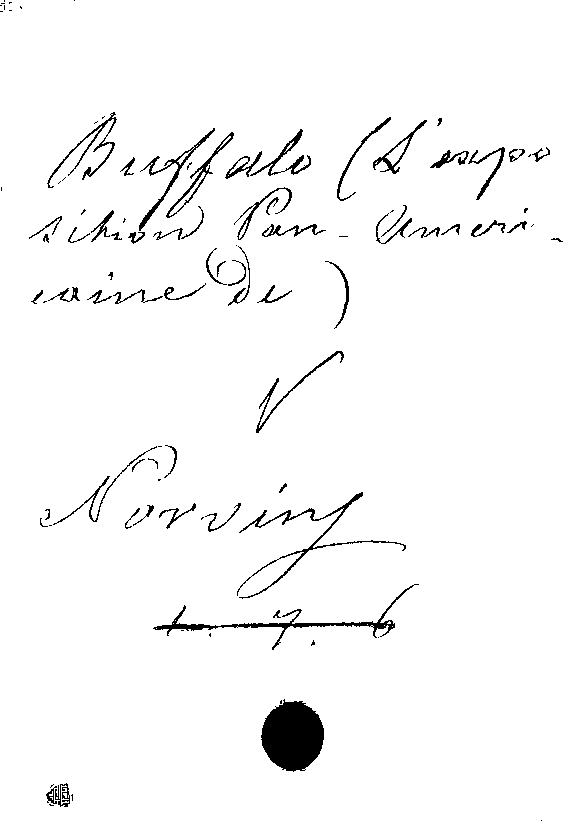 Buffalo (L'expo
sition Pan-Ameri-
caine de)
V
Norvins
1. 7. 6